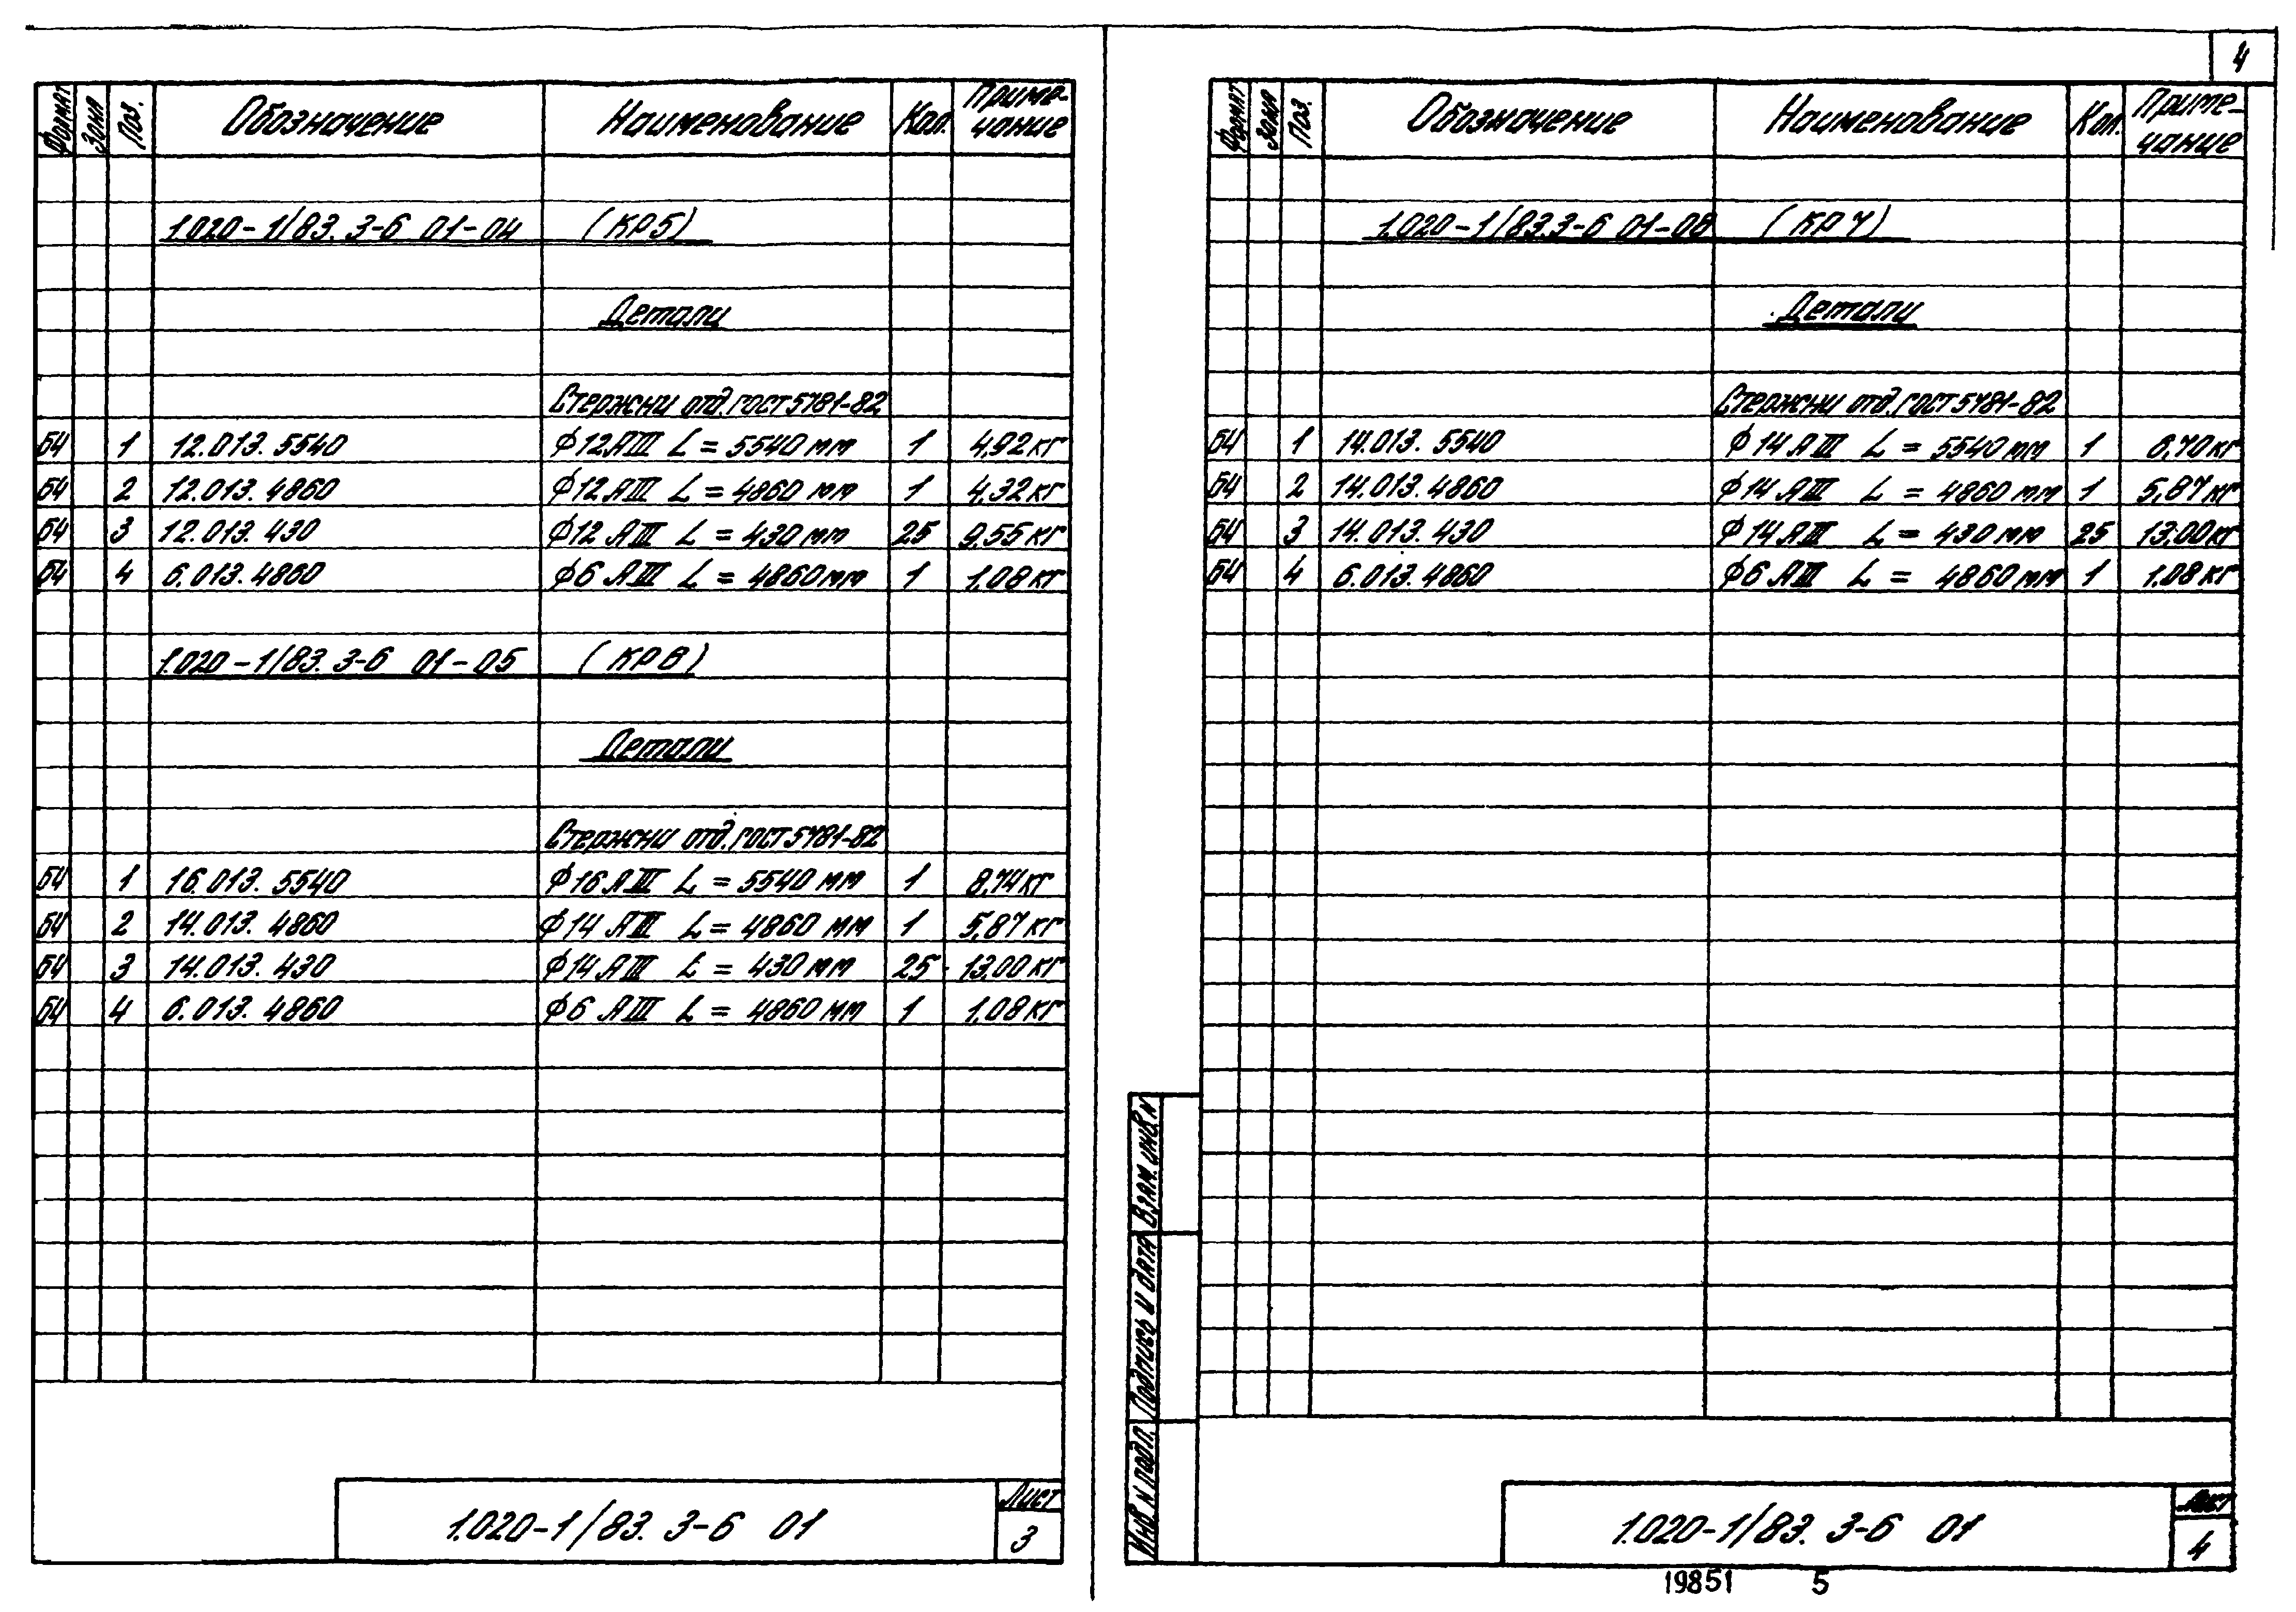 4
Формат Зона Поз. Обозначение Наименование Кол. Приме-
чание
1.020-1/83. 3-6 01-04 (КР5)
Детали
Стержни отд. ГОСТ 5781-82
БЧ 1 12.013. 5540 Ф12АIII L = 5540 мм 1 4,92 кг
БЧ 2 12.013. 4860 Ф12АIII L = 4860 мм 1 4,32 кг
БЧ 3 12.013. 430 Ф12АIII L = 430 мм 25 9,55 кг
БЧ 4 6.013. 4860 Ф6 АIII L = 4860 мм 1 1,08 кг
1.020-1/83. 3-6 01-05 (КР6)
Детали
Стержни отд. ГОСТ 5781-82
БЧ 1 16.013. 5540 Ф16 АIII L = 5540 мм 1 8,74 кг
БЧ 2 14.013. 4860 Ф14 АIII L = 4860 мм 1 5,87 кг
БЧ 3 14.013. 430 Ф14 АIII L = 430 мм 25 13,00 кг
БЧ 4 6.013. 4860 Ф6 АIII L = 4860 мм 1 1,08 кг
1.020-1/83. 3-6 01
Лист
3
Формат Зона Поз. Обозначение Наименование Кол. Приме-
чание
1.020-1/83. 3-6 01-06 (КР7)
Детали
Стержни отд. ГОСТ 5781-82
БЧ 1 14.013. 5540 Ф14 АIII L = 5540 мм 1 6,70 кг
БЧ 2 14.013. 4860 Ф14 АIII L = 4860 мм 1 5,87 кг
БЧ 3 14.013. 430 Ф14 АIII L = 430 мм 25 13,00 кг
БЧ 4 6.013. 4860 Ф6 АIII L = 4860 мм 1 1,08 кг
Взам. инв. N
Подпись и дата
Инв. N подл.
1.020-1/83. 3-6 01
Лист
4
19851 5